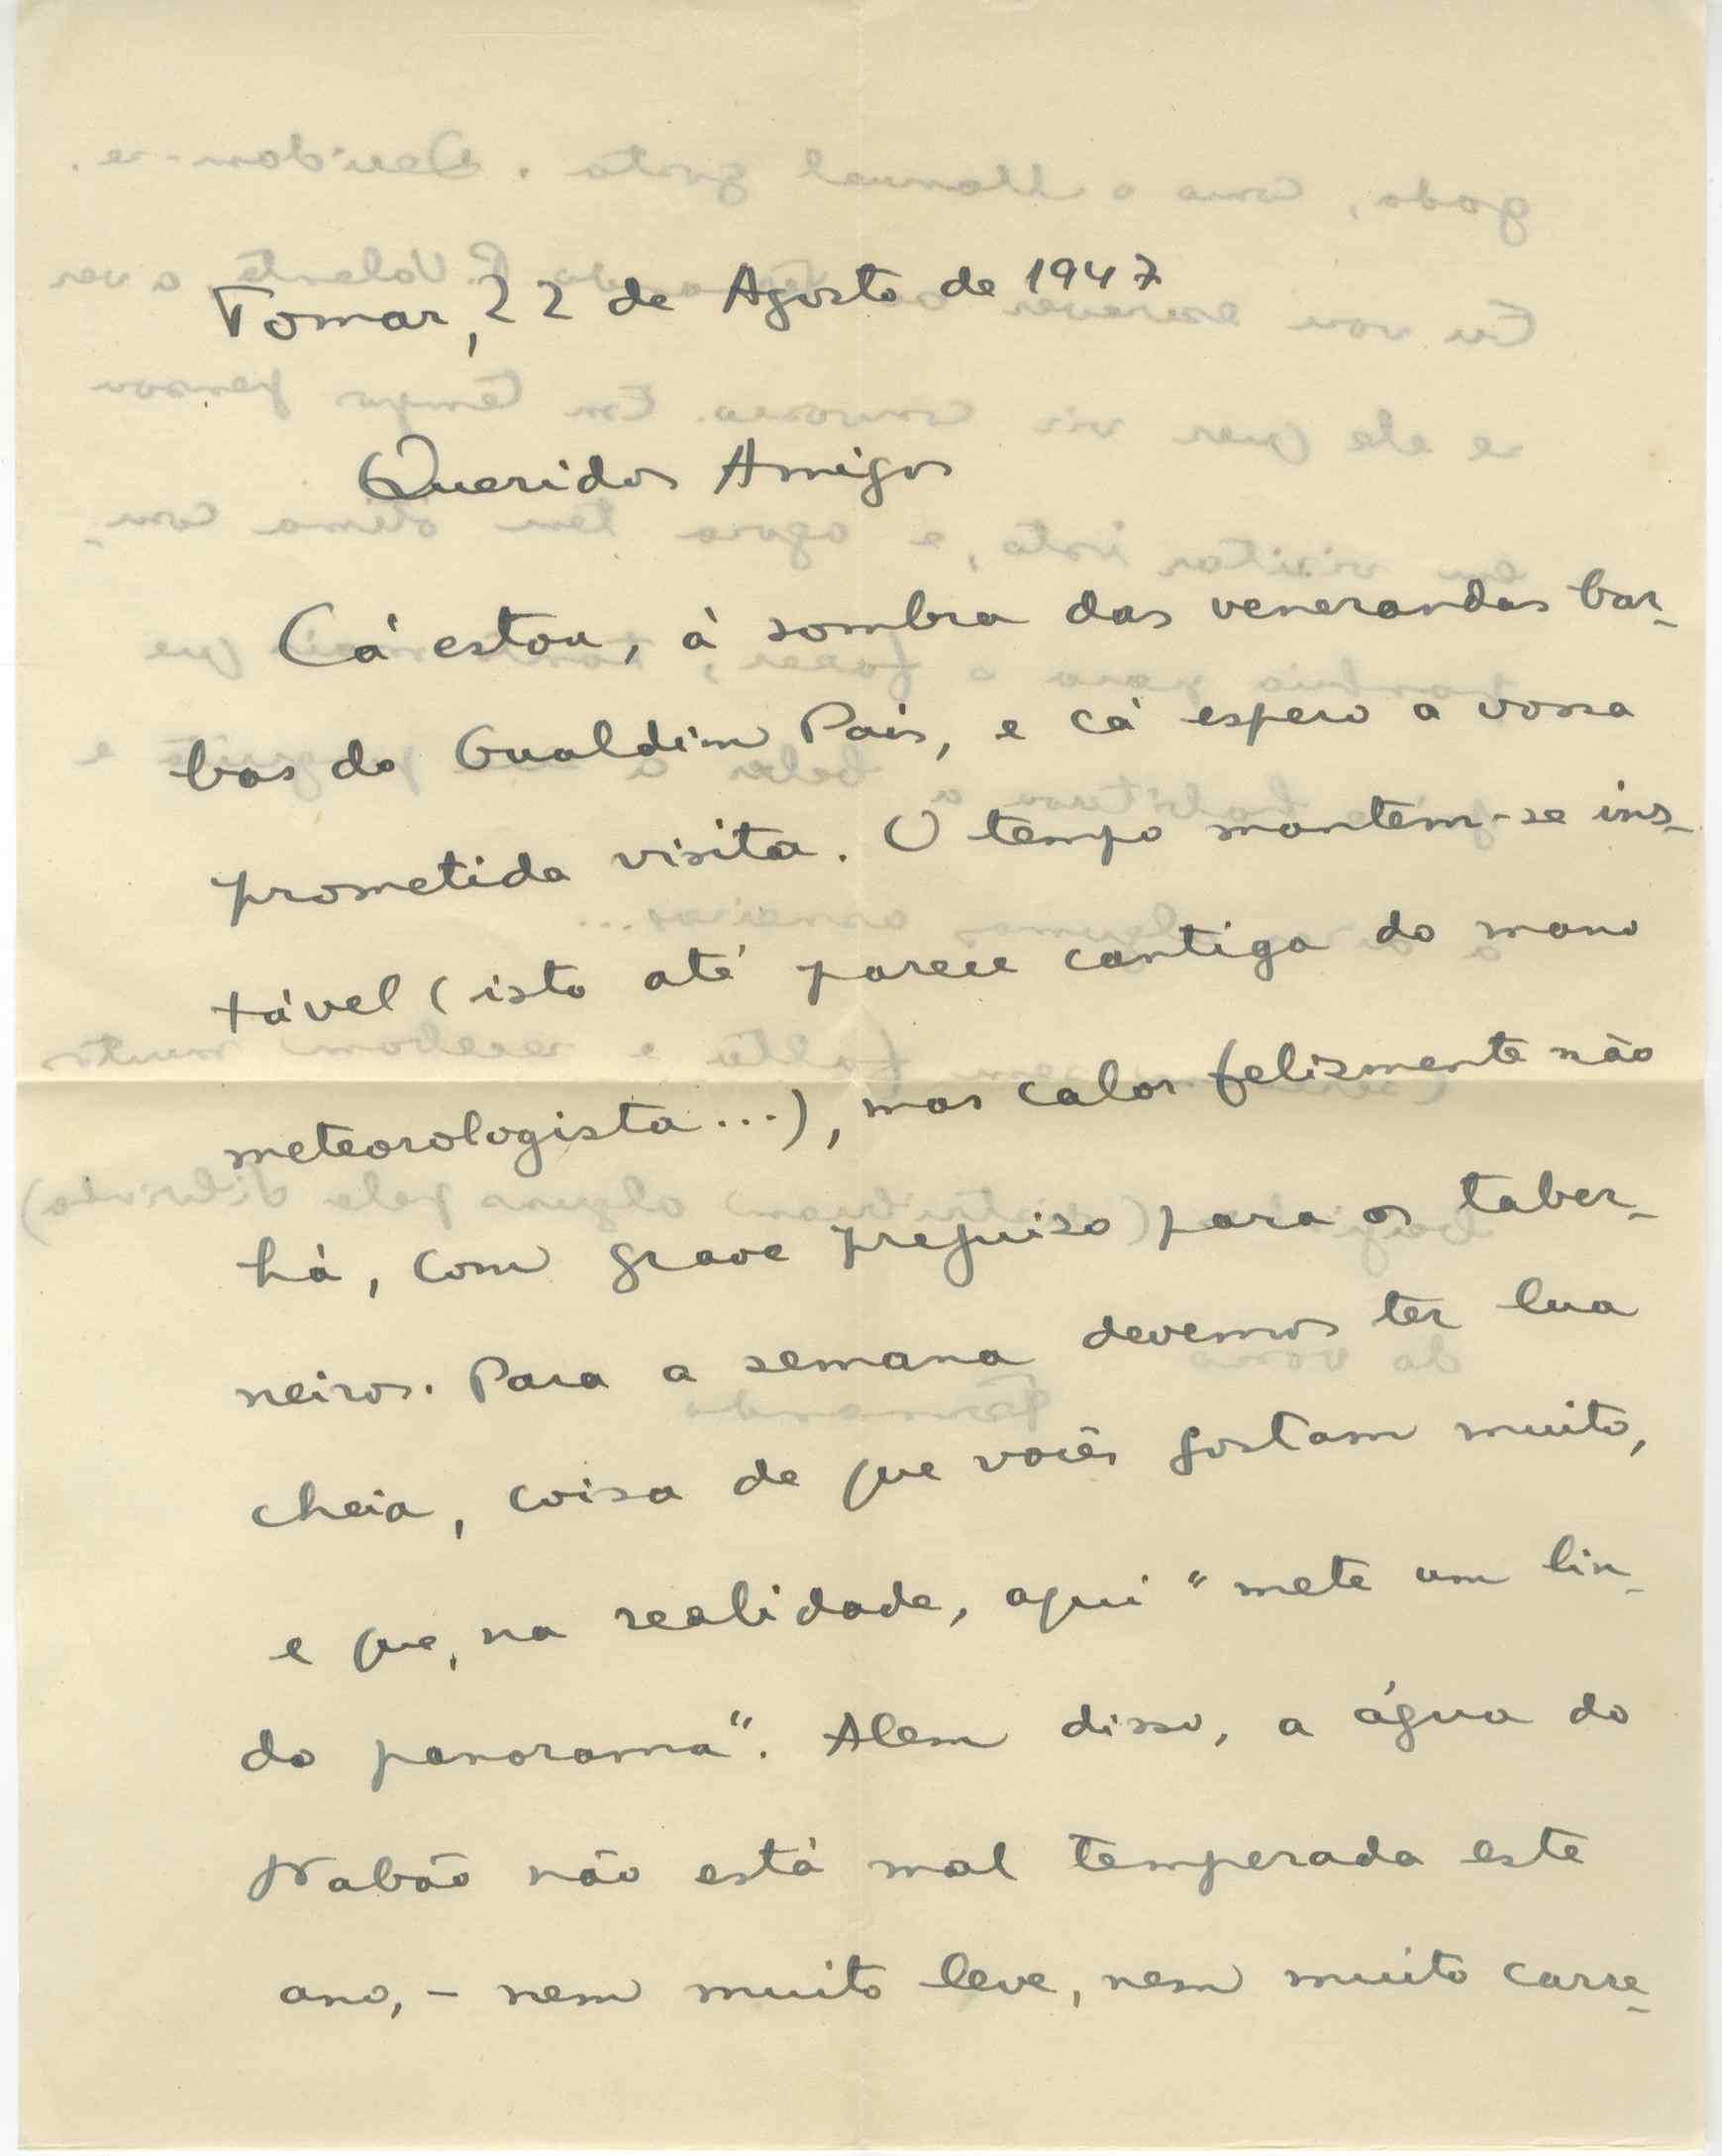 Tomar, 22 de Agosto de 1947
Queridos Amigos
Cá estou, à sombra das venerandas bar-
bas do Gualdim Pais, e cá espero a vossa
prometida visita. O tempo mantem-se ins-
tável (isto até parece cantiga do mano
meteorologista...), mas calor felizmente não
há, com grave prejuiso para os taber-
neiros. Para a semana devemos ter lua
cheia, coisa de que vocês gostam muito,
e que, na realidade, aqui "mete um lin-
do panorama". Alem disso, a água do
Nabão não está mal temperada este
ano, - nem muito leve, nem muito carre-